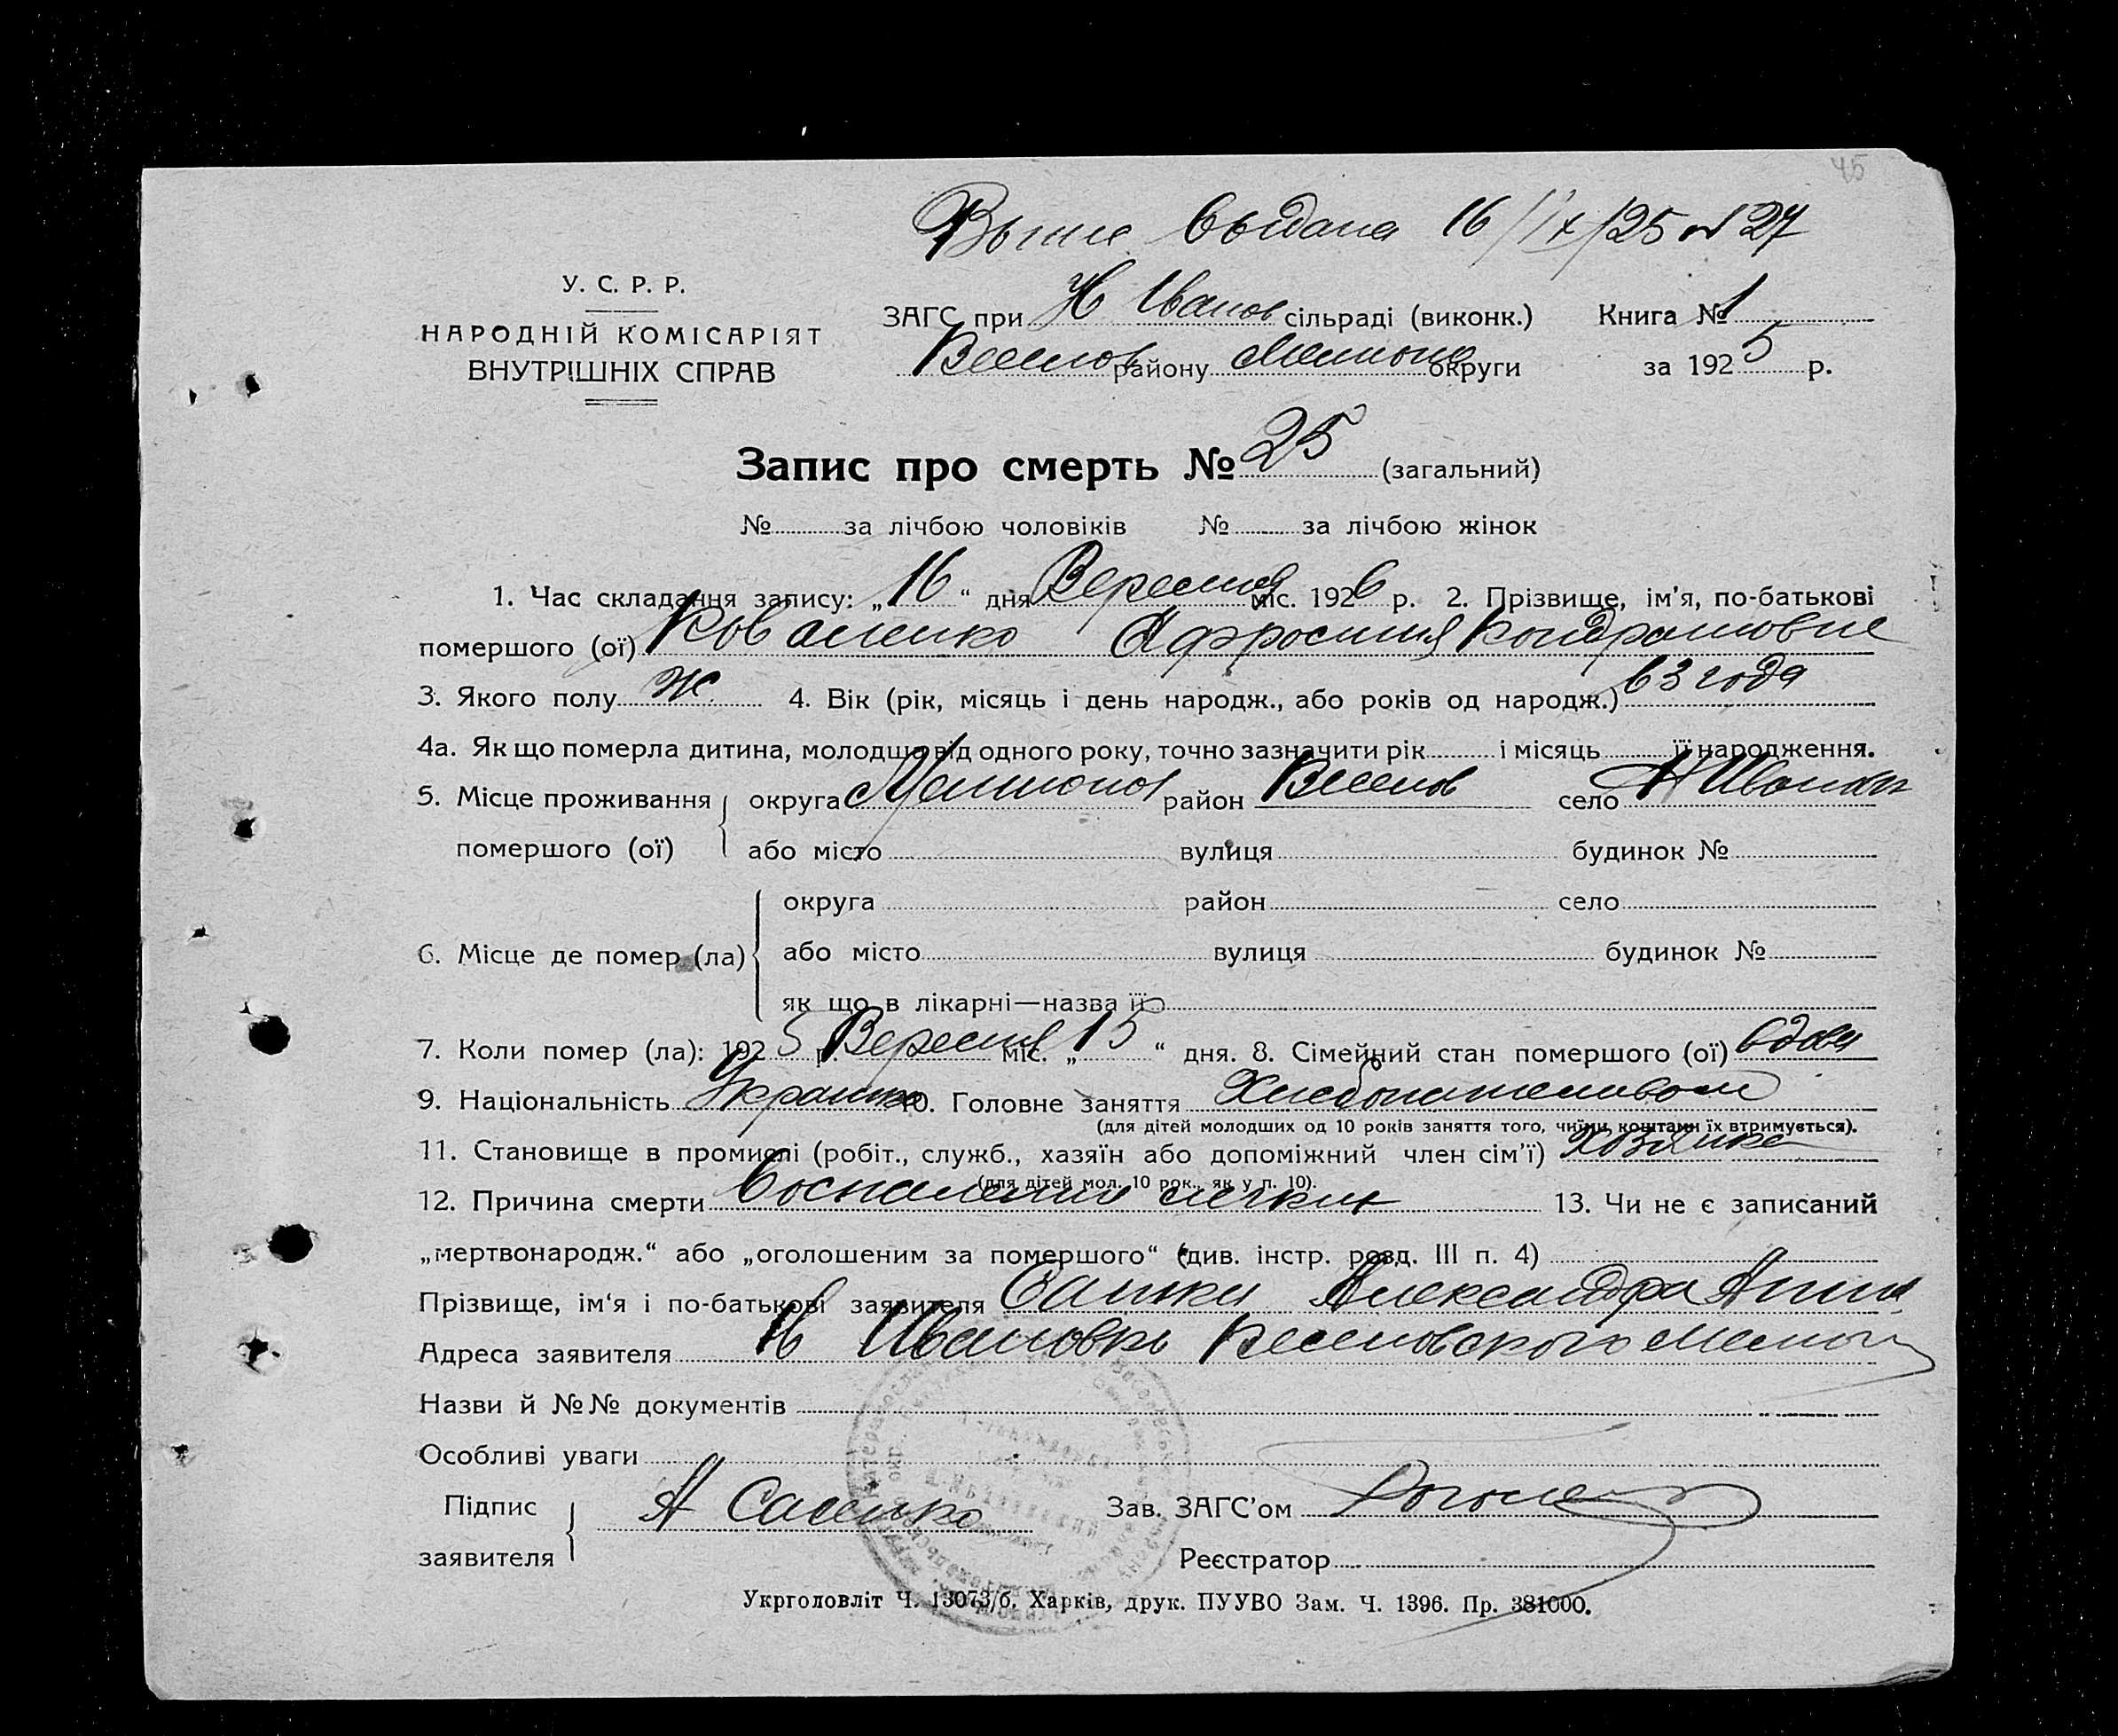 45
Выпис выдана 16/IX/25 № 27
У. С. Р. Р.
НАРОДНІЙ КОМІСАРІЯТ
ВНУТРІШНІХ СПРАВ
ЗАГС при Н Иванов сільраді (виконк.) Книга № 1
Веселов району Мелитоп округи за 1925 р.
Запис про смерть № 25 (загальний)
№ за лічбою чоловіків № за лічбою жінок
1. Час складання запису: „16“ дня Вересня міс. 1926 р. 2. Прізвище, ім'я, по-батькові
помершого (ої) Коваленко Афросиния Кондратовне
3. Якого полу Ж. 4. Вік (рік, місяць і день народж., або років од народж.) 63 года
4а. Як що померла дитина, молодша від одного року, точно зазначити рік і місяць її народження.
5. Місце проживання округа Мелитопол район Веселов село Н Ивановк
помершого (ої) або місто вулиця будинок №
округа район село
6. Місце де помер (ла) або місто вулиця будинок №
як що в лікарні—назва її
7. Коли помер (ла): 1925 р. Вересня міс. „15“ дня. 8. Сімейний стан помершого (ої) вдова
9. Національність Украинка 10. Головне заняття Хлебопашеством
(для дітей молодших од 10 років заняття того, чиїми коштами їх втримується).
11. Становище в промислі (робіт., служб., хазяїн або допоміжний член сім'ї) хозяйка
(для дітей мол. 10 рок., як у п. 10).
12. Причина смерти Воспаление легких 13. Чи не є записаний
„мертвонародж.“ або „оголошеним за помершого“ (див. інстр. розд. III п. 4)
Прізвище, ім‘я і по-батькові заявителя Александра
Адреса заявителя Н Ивановкь Веселовского Мелитоп
Назви й №№ документів
Особливі уваги
Підпис
заявителя А Саенко Зав. ЗАГС'ом
Реєстратор
Укрголовліт Ч. 13073/б. Харків, друк. ПУУВО Зам. Ч. 1396. Пр. 381000.